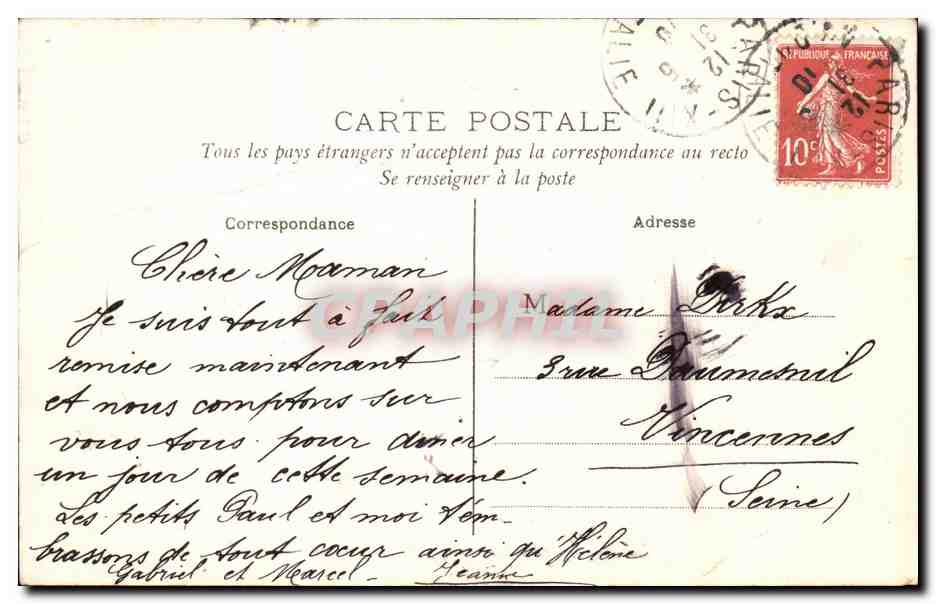 CARTE POSTALE
Tous les pays étrangers n'acceptent pas la correspondance au recto
Se renseigner à la poste
RÉPUBLIQUE FRANÇAISE
10c POSTES
PARIS-XII
12
Correspondance
Chère Maman
Je suis tout à fait
remise maintenant
et nous comptons sur
vous tous pour diner
un jour de cette semaine.
Les petits Paul et moi t'em-
brassons de tout coeur ainsi qu'Hélène
Gabriel et Marcel - Jeanne
Adresse
Madame Dirkx
3 rue Daumesnil
Vincennes
(Seine)
CPAPHIL